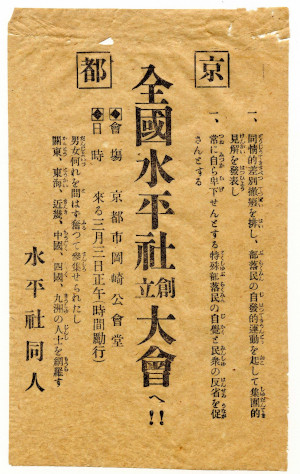 京都
一、同情的差別撤廢を排し、部落民の自發的運動を起して集團的
見解を發表し
一、常に自ら卑下せんとする特殊部落民の自覺と民衆の反省を促
さんとする
全國水平社創立大會へ!!
◆會場 京都市岡崎公會堂
◆日時 來る三月三日正午(時間勵行)
男女何れを問はず奮つて參集せられたし
關東、東海、近畿、中國、四國、九洲の人士を網羅す
水平社同人